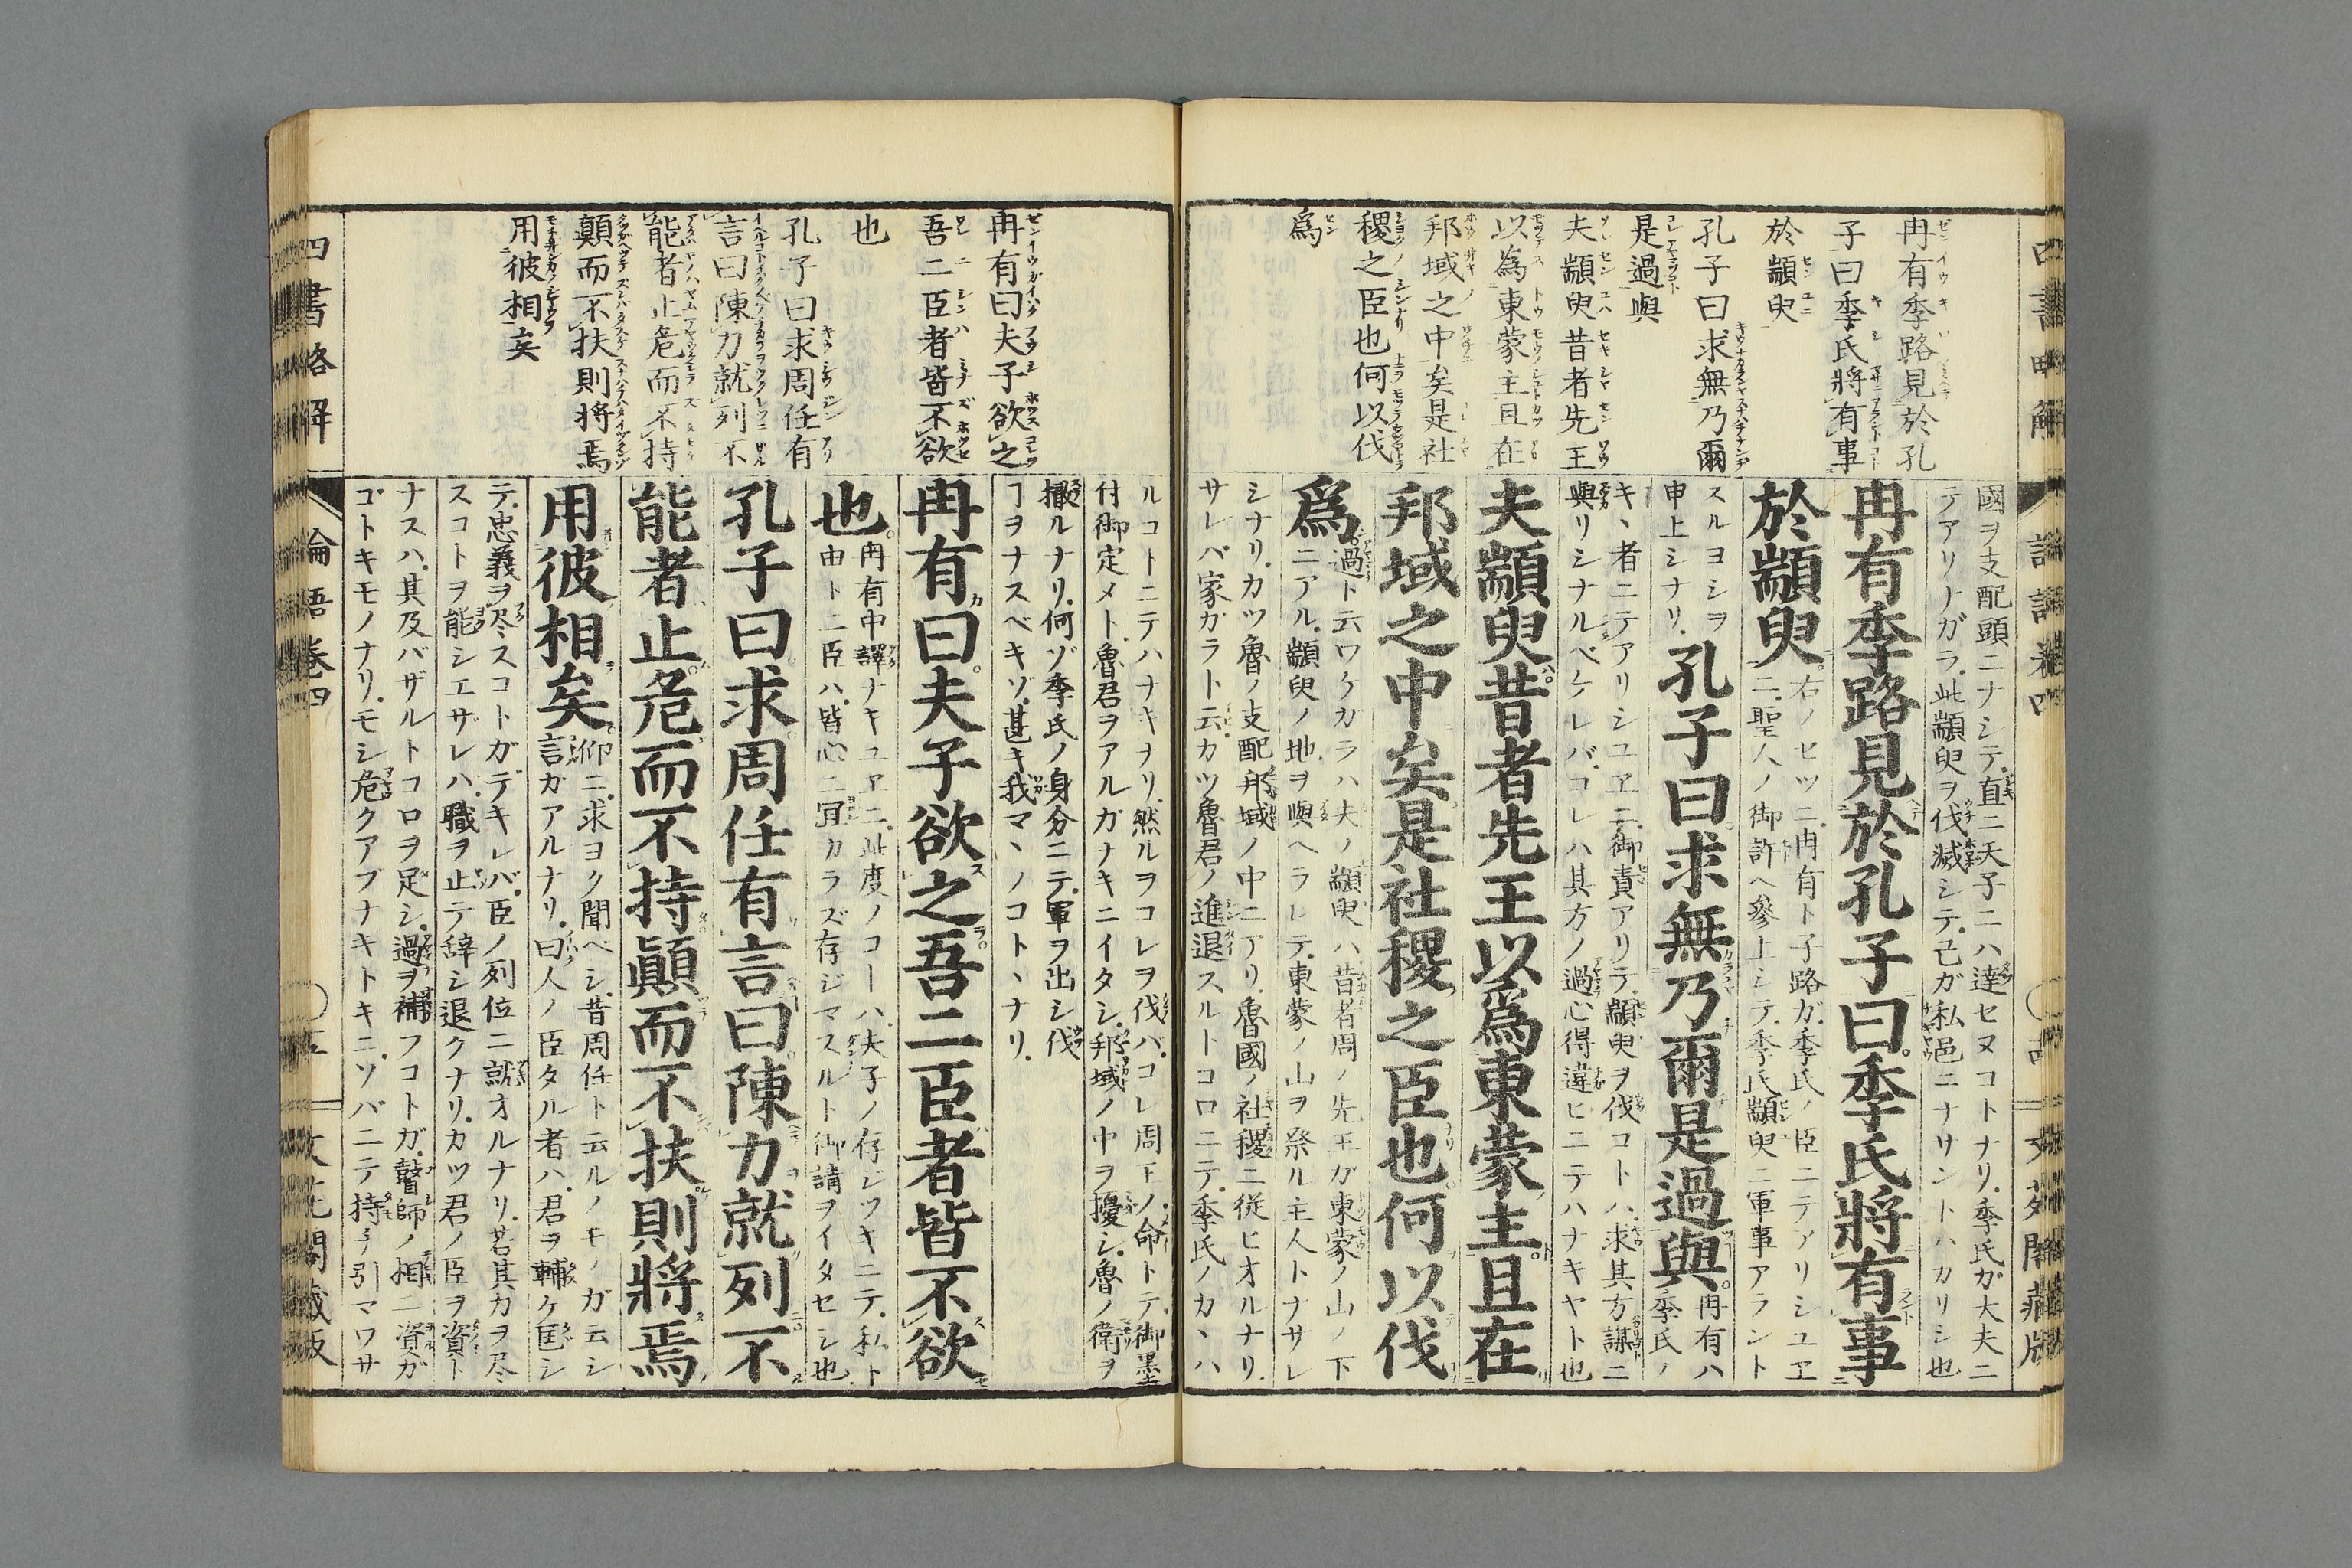 冉有季路見於孔
子曰季氏將有事
於顓臾
孔子曰求無乃爾
是過與
夫顓臾昔者先王
以為東蒙主且在
邦域之中矣是社
稷之臣也何以伐
爲
國ヲ支配頭ニナシテ直ニ天子ニハ達セヌコトナリ季氏ガ大夫ニ
テアリナガラ此顓臾ヲ伐滅シテ己ガ私邑ニナサントハカリシ也
冉有季路見於孔子曰季氏將有事
於顓臾
右ノヒツニ冉有ト子路ガ季氏ノ臣ニテアリシユヱ
ニ聖人ノ御許ヘ參上シテ季氏顓臾ニ軍事アラント
スルヨシヲ
申上シナリ
孔子曰求無乃爾是過與
冉有ハ
季氏ノ
キヽ者ニテアリシユヱニ御責アリテ顓臾ヲ伐コトハ求其方謀ニ
與リシナルベケレバコレハ其方ノ過心得違ヒニテハナキヤト也
夫顓臾昔者先王以爲東蒙主且在
邦域之中矣是社稷之臣也何以伐
爲
過ト云ワケカラハ夫ノ顓臾ハ昔者周ノ先王ガ東蒙ノ山ノ下
ニアル顓臾ノ地ヲ與ヘラレテ東蒙ノ山ヲ祭ル主人トナサレ
シナリカツ魯ノ支配邦域ノ中ニアリ魯國ノ社稷ニ従ヒオルナリ
サレバ家ガラト云カツ魯君ノ進退スルトコロニテ季氏ノカヽハ
冉有曰夫子欲之
吾二臣者皆不欲
也
孔子曰求周任有
言曰陳力就列不
能者止危而不持
顛而不扶則將焉
用彼相矣
ルコトニテハナキナリ然ルヲコレヲ伐バコレ周王ノ命トテ御墨
付御定メト魯君ヲアルガナキニイタシ邦域ノ中ヲ擾シ魯ノ衛ヲ
撤ルナリ何ゾ季氏ノ身分ニテ軍ヲ出シ伐
ヿヲナスベキゾ甚キ我マヽノコトヽナリ
冉有曰夫子欲之吾二臣者皆不欲
也
冉有申譯ナキユヱニ此度ノコーハ夫子ノ存ジツキニテ私ト
由ト二臣ハ皆心ニ冝カラズ存ジマスルト御請ヲイタセシ也
孔子曰求周任有言曰陳力就列不
能者止危而不持顚而不扶則將焉
用彼相矣
仰ニ求ヨク聞ベシ昔周任ト云ルノモノガ云シ
言ガアルナリ曰人ノ臣タル者ハ君ヲ輔ケ匡シ
テ忠義ヲ尽スコトガデキレバ臣ノ列位ニ就オルナリ若其力ヲ尽
スコトヲ能シエザレハ職ヲ止テ辞シ退クナリカツ君ノ臣ヲ資ト
ナスハ其及バザルトコロヲ足シ過ヲ補フコトガ瞽師ノ相ニ資ガ
ゴトキモノナリモシ危クアブナキトキニソバニテ持子引マワサ
四書略解
論語巻四